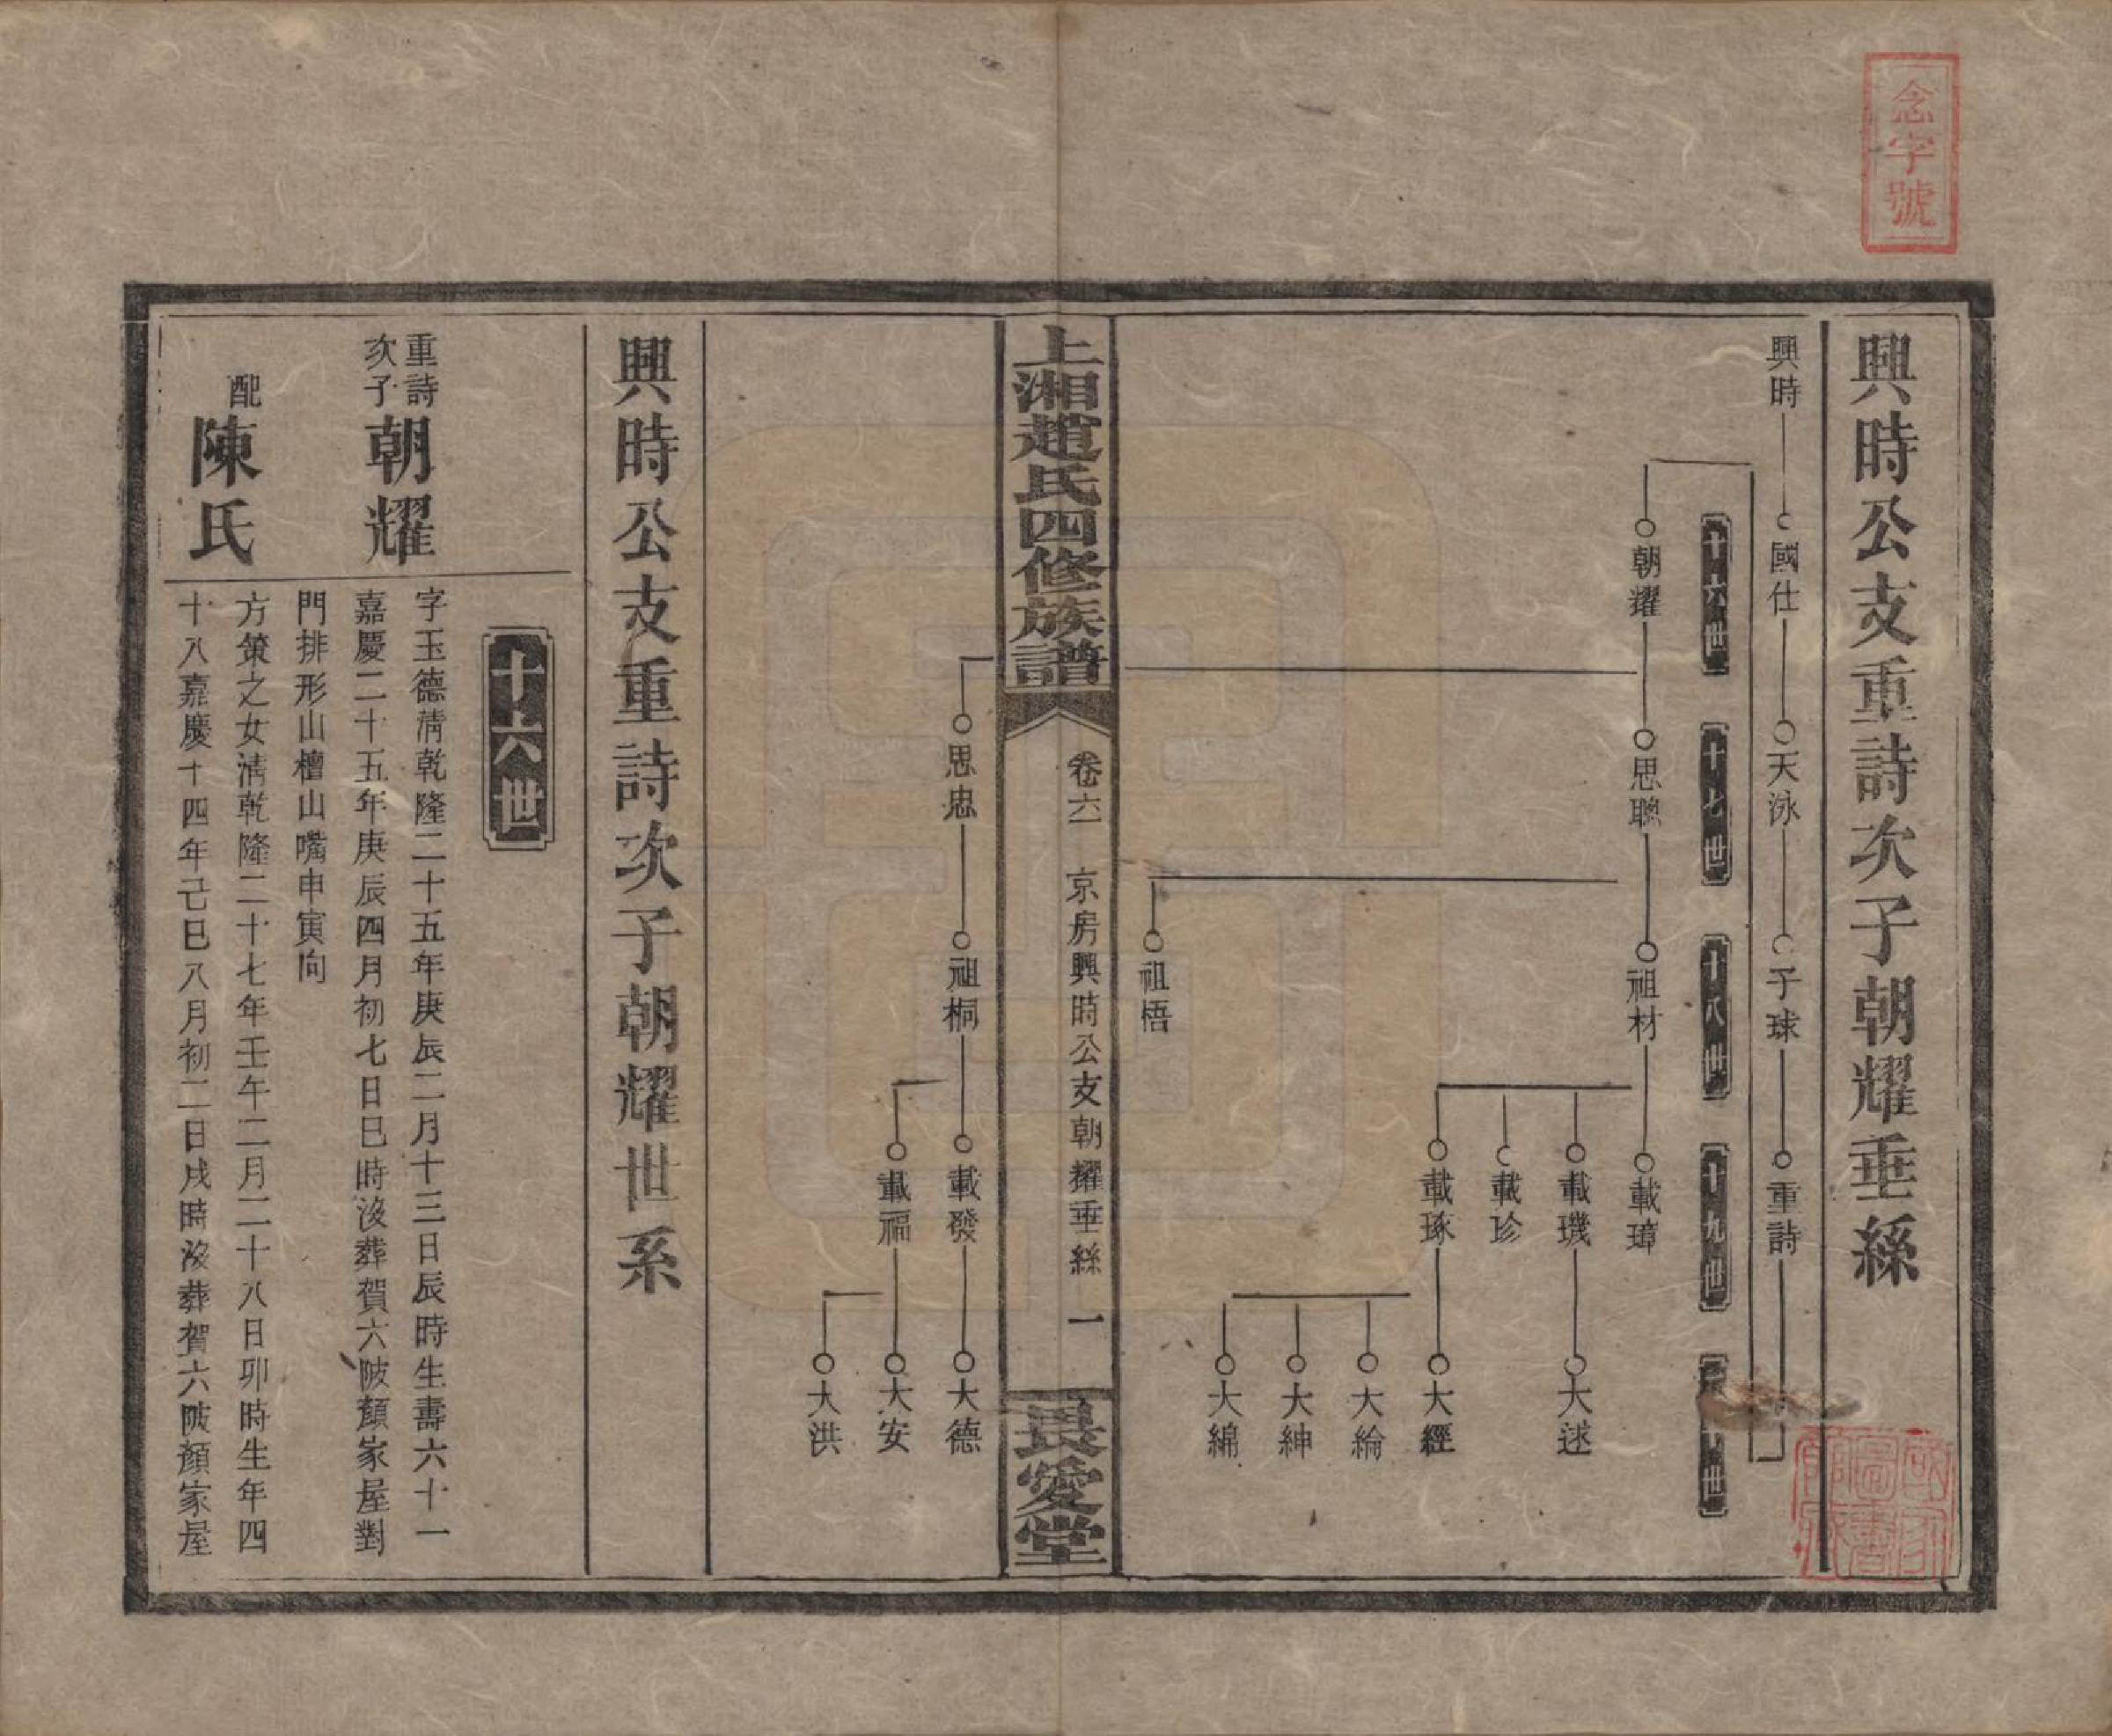 念字號
興時公支重詩次子朝耀垂絲
興時 國仕 天泳 子球 重詩
十六世 十七世 十八世 十九世 世
朝耀 思聰 祖材 載璋
載璣 大述
載珍
載琢 大經
大綸
大紳
大綿
祖悟
上湘趙氏四修族譜 卷六 京房興時公支朝耀垂絲 一 畏愛堂
思忠 祖桐 載發 大德
載福 大安
大洪
興時公支重詩次子朝耀世系
十六世
重詩次子 朝耀
字玉德清乾隆二十五年庚辰二月十三日辰時生壽六十一
嘉慶二十五年庚辰四月初七日巳時沒葬賀六陂顏家屋對
門排形山檀山嘴申寅向
配 陳氏
方策之女清乾隆二十七年壬午二月二十八日卯時生年四
十八嘉慶十四年己巳八月初二日戌時沒葬賀六陂顏家屋